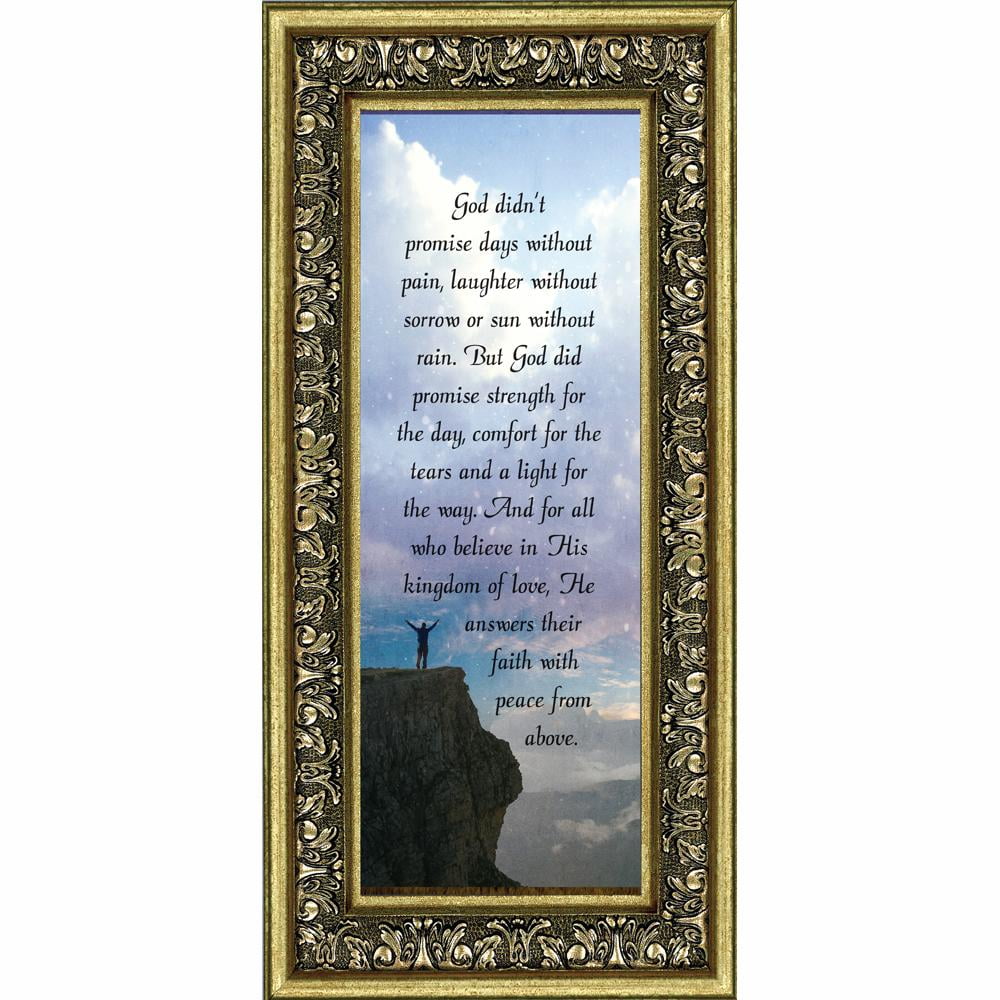 God didn't
promise days without
pain, laughter without
sorrow or sun without
rain. But God did
promise strength for
the day, comfort for the
tears and a light for
the way. And for all
who believe in His
kingdom of love, He
answers their
faith with
peace from
above.